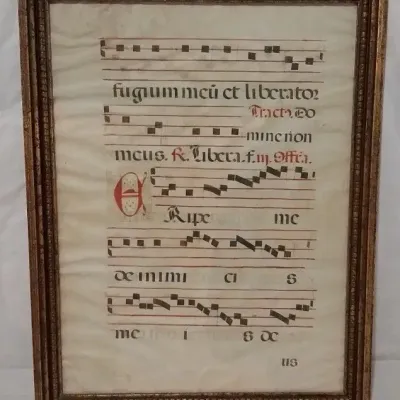 fugium meū et liberator
Tract₉. Do
mine non
meus. R. Libera. f. iij. Offr̄a.
E Ripe me
de inimi ci s
me i s de
us